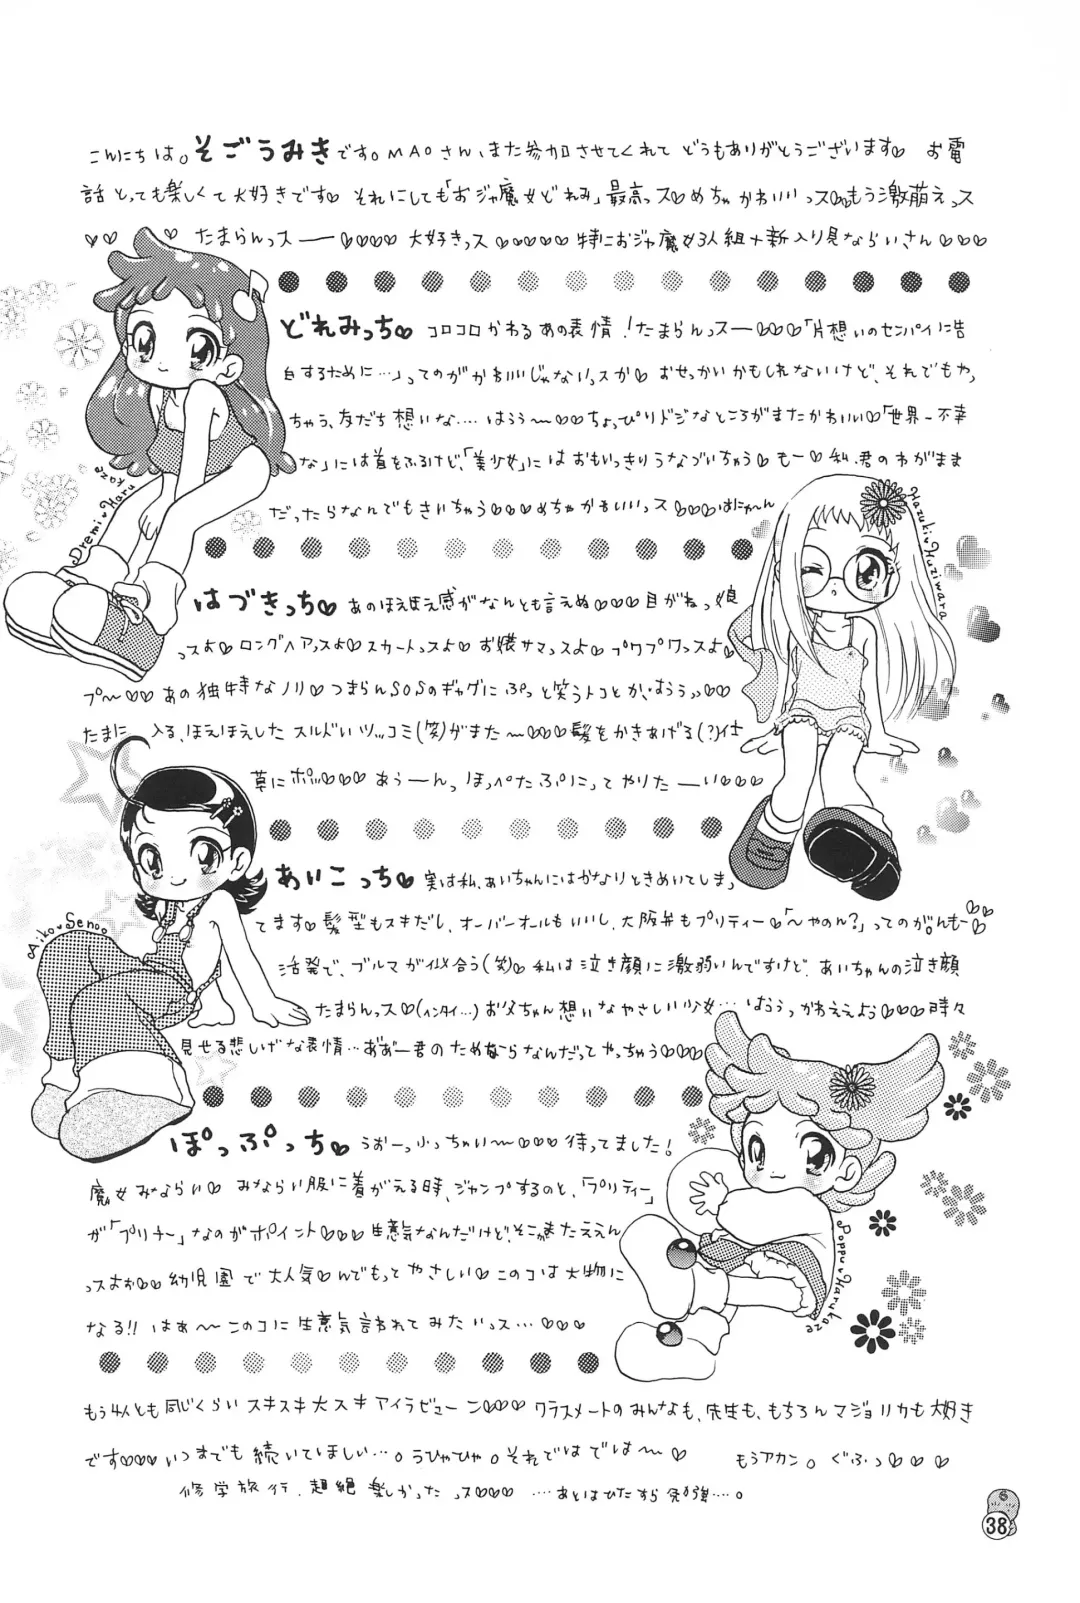 こんにちは。そごうみきです。MAOさん、また参加させてくれて どうもありがとうございます♡ お電
話とっても楽しくて大好きです♡ それにしても「おジャ魔女どれみ」最高っス♡めちゃかわいいっス♡♡もう激萌えっス
♡♡ ♡ たまらんっスー♡♡♡♡ 大好きっス♡♡♡♡♡特におジャ魔女3人組+新入り見ならいさん♡♡♡
どれみっち♡ コロコロかわるあの表情！たまらんっスー♡♡♡「片想いのセンパイに告
白するために…」ってのがかわいいじゃないっスか♡ おせっかいかもしれないけど、それでもや、
ちゃう、友だち想いな…. はうう〜♡♡ちょっぴりドジなところがまたかわいい♡「世界一不幸
な」には首をふるけど、「美少女」にはおもいっきりうなづいちゃう♡もー♡私、君のわがまま
だったらなんでもきいちゃう♡♡♡めちゃかわいいっス♡♡♡はにゃ〜ん
Dremi♡Harukaze
はづきっち♡ あのほえほえ感がなんとも言えぬ♡♡♡目がねっ娘
っスよ♡ロングヘアっスよ♡スカートっスよ♡お嬢サマっスよ♡プワプワっスよ♡
プ〜♡♡あの独特なノリ♡つまらんSOSのギャグにぷっと笑うトコとか、はううっ♡♡
たまに入る、ほえほえしたスルドいツッコミ(笑)がまた〜♡♡♡髪をかきあげる(?)仕
草にポッ♡♡♡あぅーん。ほっぺたぷにってやりたーい♡♡♡
Hazuki♡Huziwara
あいこっち♡ 実は私、あいちゃんにはかなりときめいてしまっ
てます♡髪型もスキだし、オーバーオールもいいし、大阪弁もプリティー♡「〜やのん？」ってのが。んもー♡♡♡
活発で、ブルマが似合う(笑)♡私は泣き顔に激弱いんですけど、あいちゃんの泣き顔
たまらんっス♡(インタイ…)お父ちゃん想いなやさしい少女…はううっかわええよぉ♡♡♡時々
見せる悲しげな表情…おおー君のためならなんだってやっちゃう♡♡♡
Aiko♡Senoo
ぽっぷっち♡ うおーっ小っちゃい〜♡♡♡待ってました！
魔女みならい♡ みならい服に着がえる時、ジャンプするのと、「プリティー」
が「プリチー」なのがポイント♡♡♡生意気なんだけど、そこがまたええん
っスよぉ♡♡幼児園で大人気♡んでもってやさしい♡このコは大物に
なる!! はぁ〜このコに生意気言われてみたいっス…♡♡♡
Poppu♡Harukaze
もう4人とも同じくらいスキスキ大スキアイラビューン♡♡♡クラスメートのみんなも、先生も、もちろんマジョリカも大好き
です♡♡♡いつまでも続いてほしい…。うひゃひゃ。それではでは〜♡ もうアカン。ぐふっ♡♡♡
修学旅行、超絶楽しかったっス♡♡♡ ….あとはひたすら勉強….。
38